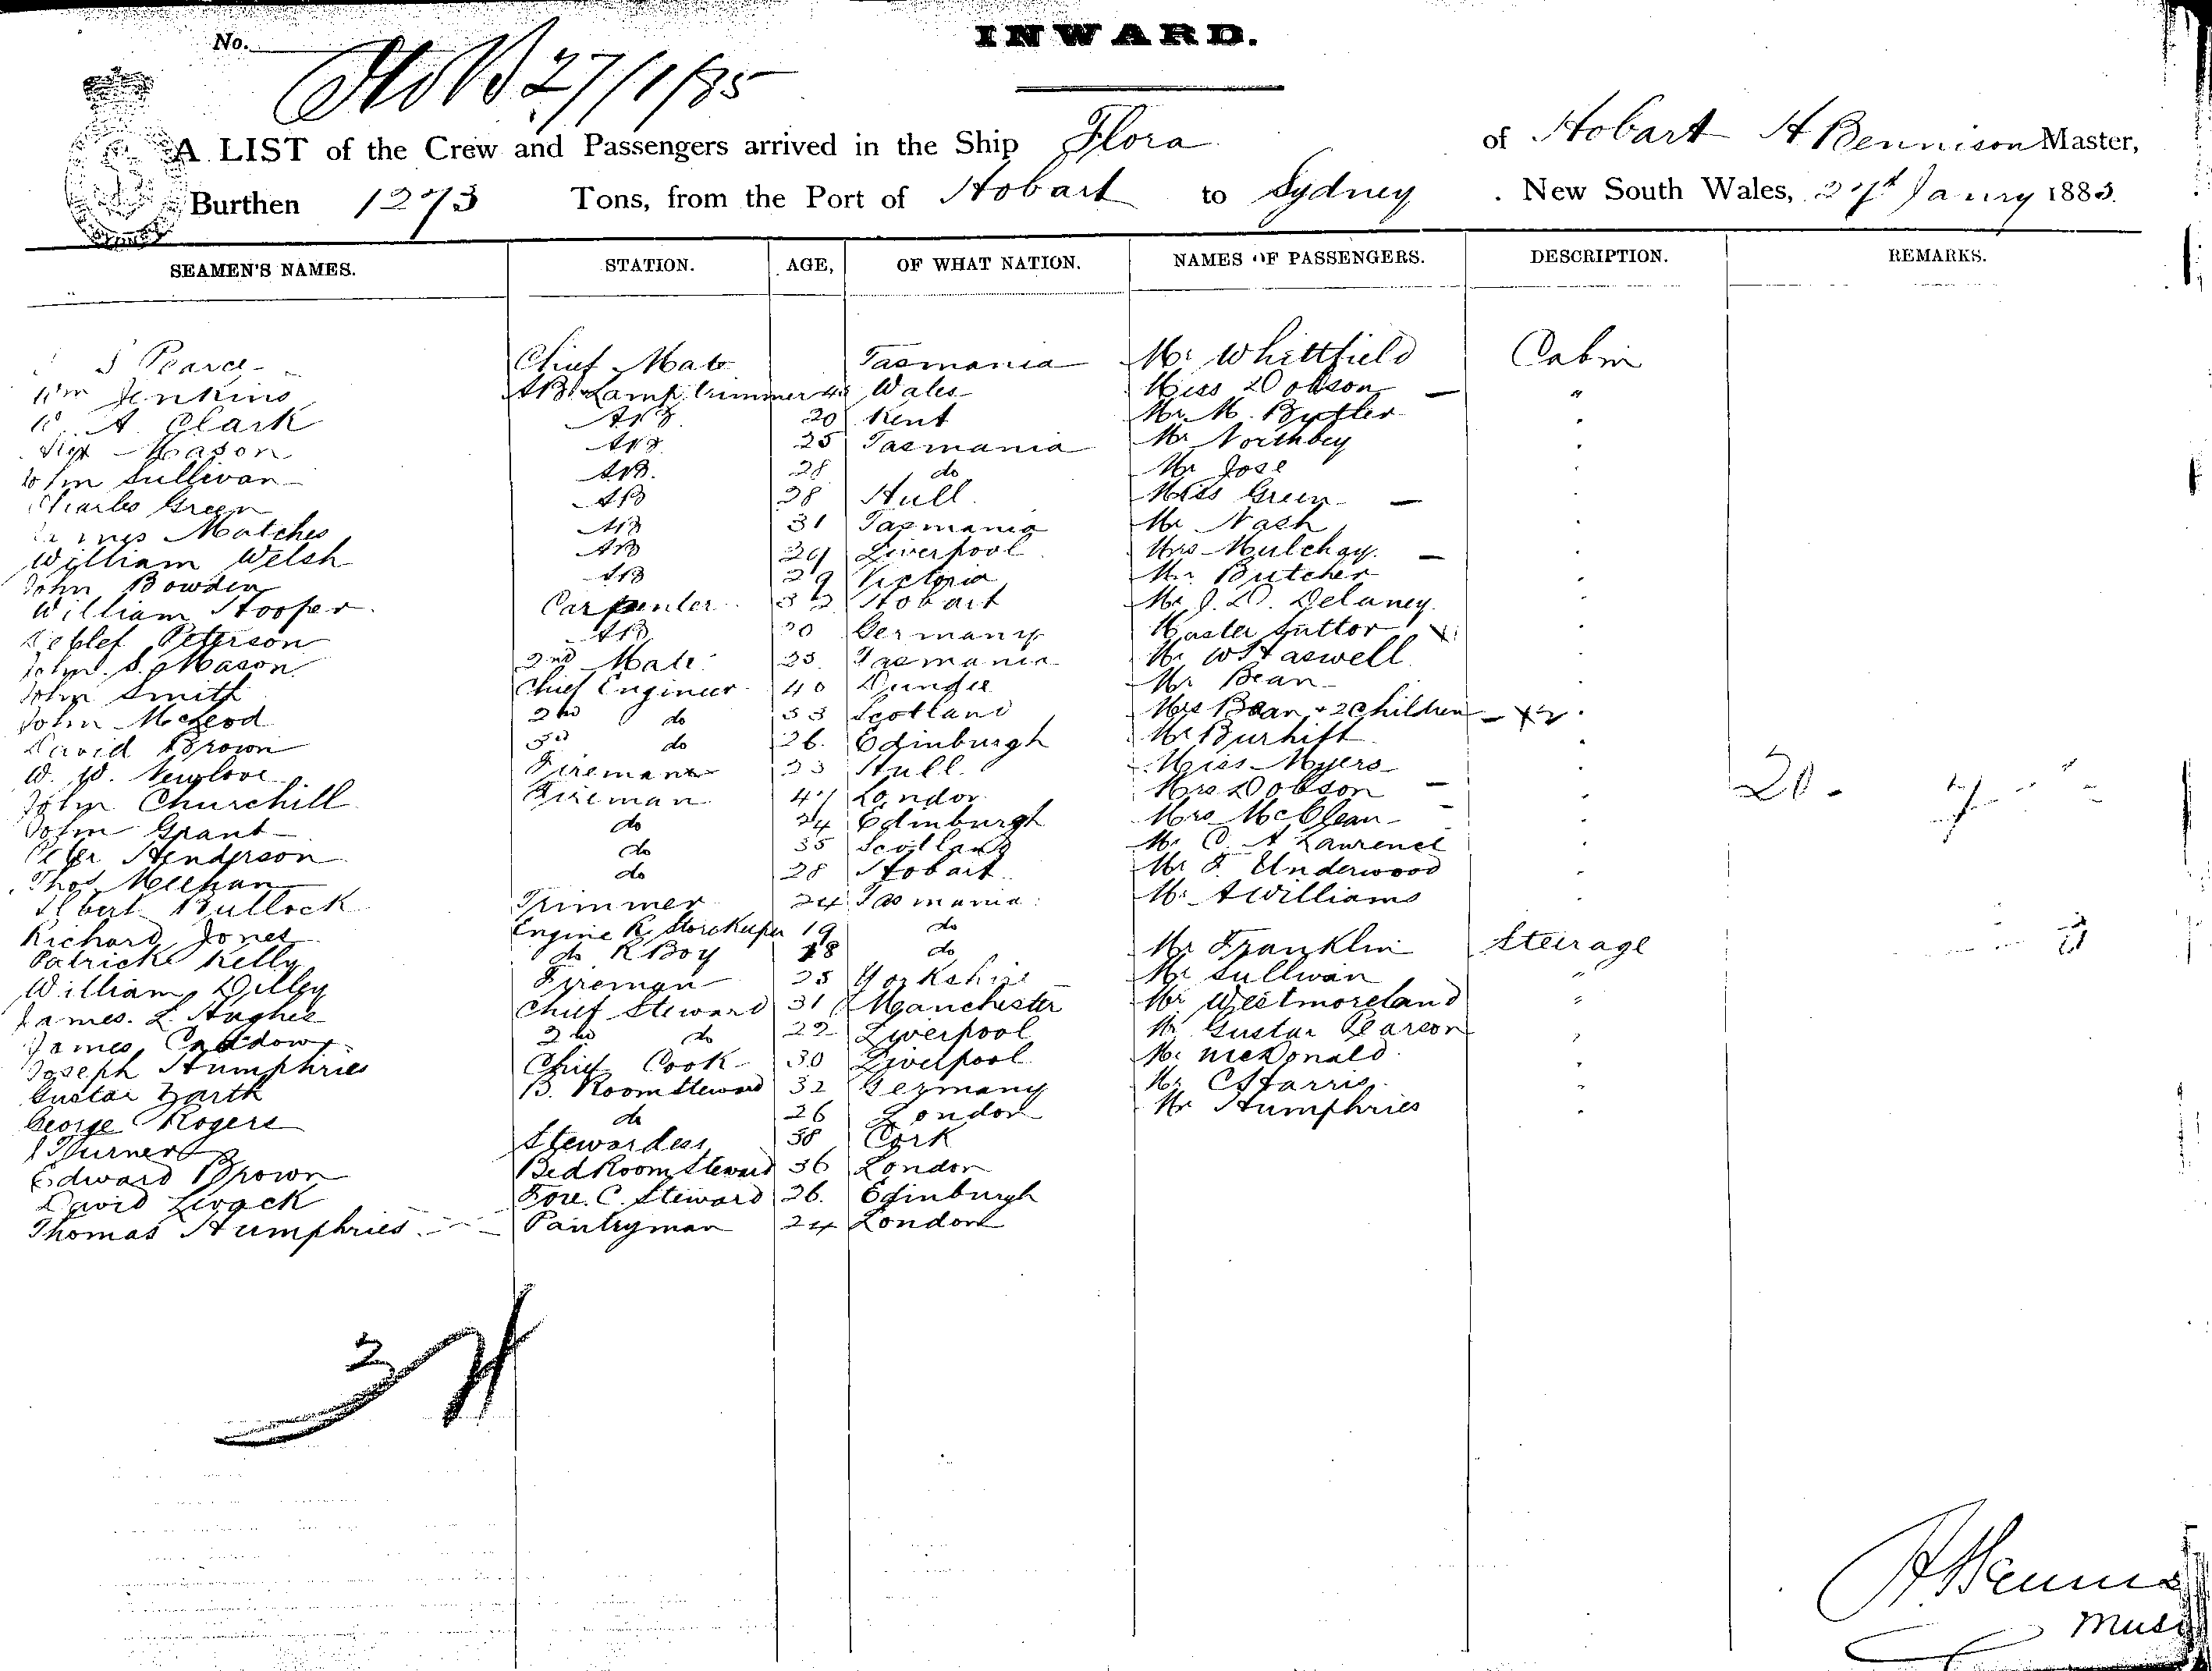 INWARD.
No.
HoB 27/1/85
A LIST of the Crew and Passengers arrived in the Ship Flora of Hobart H Bennison Master,
Burthen 1273 Tons, from the Port of Hobart to Sydney. New South Wales, 27th Janry 1885.
SEAMEN'S NAMES. STATION. AGE, OF WHAT NATION. NAMES OF PASSENGERS. DESCRIPTION. REMARKS.
Pearce Chief Mate Tasmania Mr Whittfield Cabin
Wm Jenkins AB & Lamp trimmer Wales Miss Dobson — "
A Clark AB 20 Kent Mr M. Butler
Mason AB 25 Tasmania Mr
John Sullivan AB. 28 do Mr Jose
Charles Green AB 38 Hull. Miss Green —
James Matches AB 31 Tasmania Mr Nash
William Welsh AB Liverpool Mrs Mulchay. —
John Bowden AB 29 Victoria Mr Butcher
William Hooper. Carpenter Hobart Mr J. D. Delaney.
Detlef Peterson AB Germany Master Suttor
John. S. Mason 2nd Mate Tasmania Mr
John Smith Chief Engineer 40 Dundee Mr Bean
John McLeod 2nd do 33 Scotland Mrs Bean + 2 Children
David Brown 3rd do 26. Edinburgh Mr
W. W. Newlove Fireman 23 Hull. Miss Myers
John Churchill Fireman London Mrs Dobson — 20 -
John Grant do 24 Edinburgh Mrs McClean -
Peter Henderson do 35 Scotland Mr C. A Laurence
Thos Meehan do 28 Hobart Mr F. Underwood
Albert Bullock Trimmer 24 Tasmania Mr A Williams
Richard Jones Engine R. Storekeeper 19 do
Patrick Kelly do R Boy 18 do Mr Franklin Steerage
William Dilley Fireman 25 Yorkshire Mr Sullivan "
James. L. Hughes Chief Steward 31 Manchester Mr Westmoreland "
James 2nd do 22 Liverpool Mr Gustav Pearson
Joseph Humphries Chief Cook 30 Liverpool Mr McDonald.
Gustav Barth B. Room Steward 32 Germany Mr C Harris.
George Rogers do 26 London Mr Humphries
Turner Stewardess 38 Cork
Edward Brown Bed Room Steward 36 London
David Livack Fore. C. Steward 26. Edinburgh
Thomas Humphries Pantryman 24 London